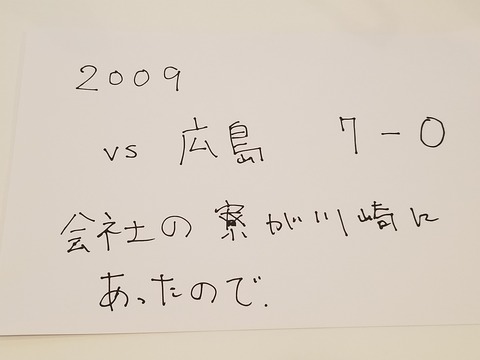 2009
vs 広島 7-0
会社の寮が川崎に
あったので.